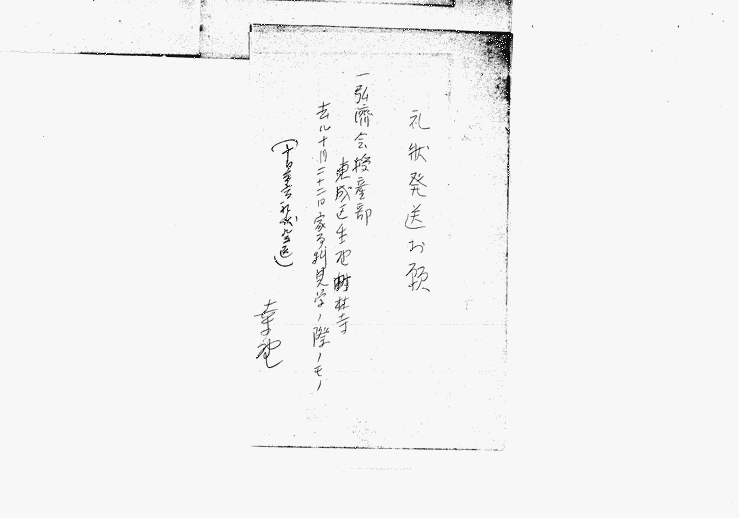 礼状発送お願
一弘済会授産部
東成区生野 樹林寺
去ル十月二十二日家事科見学ノ際ノモノ
礼状発送